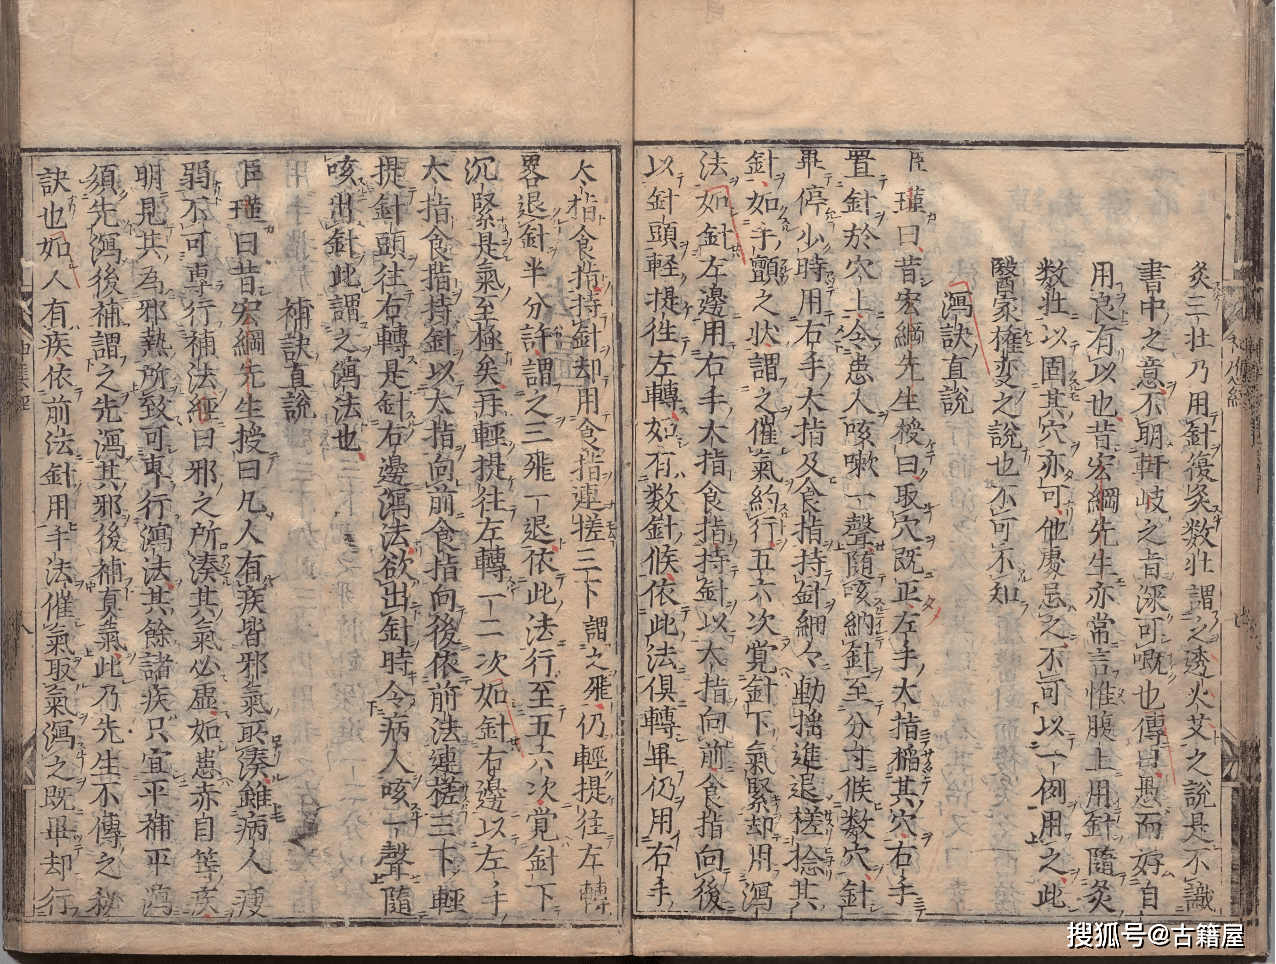 灸三壯乃用針復灸数壯謂之透火艾之說是不識
書中之意不明軒岐之旨深可嘅也傳曰愚而好自
用良有以也昔宏綱先生亦常言惟腹上用針隨灸
数壯以固其穴亦可他處忌之不可以一例用之此
醫家權变之說也不可不知
瀉訣直說
臣瑾曰昔宏綱先生授曰取穴既正左手大指掐其穴右手
置針於穴上令患人咳嗽一聲隨咳納針至分寸候数穴針
畢停少時用右手大指及食指持針細々動搖進退搓捻其
針如手顫之状謂之催氣約行五六次覚針下氣緊却用瀉
法如針左邊用右手大指食指持針以大指向前食指向後
以針頭軽提往左轉如有数針候依此法俱轉畢仍用右手
大指食指持針却用食指連搓三下謂之飛仍輕提往左轉
畧退針半分許謂之三飛一退依此法行至五六次覚針下
沉緊是氣至極矣再輕提往左轉一二次如針右邊以左手
大指食指持針以大指向前食指向後依前法連搓三下輕
提針頭往右轉是針右邊瀉法欲出針時令病人咳一聲隨
咳出針此謂之瀉法也
補訣直說
臣瑾曰昔宏綱先生授曰凡人有疾皆邪氣所湊雖病人瘦
弱不可専行補法經曰邪之所湊其氣必虛如患赤目等疾
明見其為邪熱所致可専行瀉法其餘諸疾只宜平補平瀉
須先瀉後補謂之先瀉其邪後補真氣此乃先生不傳之秘
訣也如人有疾依前法針用手法催氣取氣瀉之既畢却行
七
八
搜狐号@古籍屋